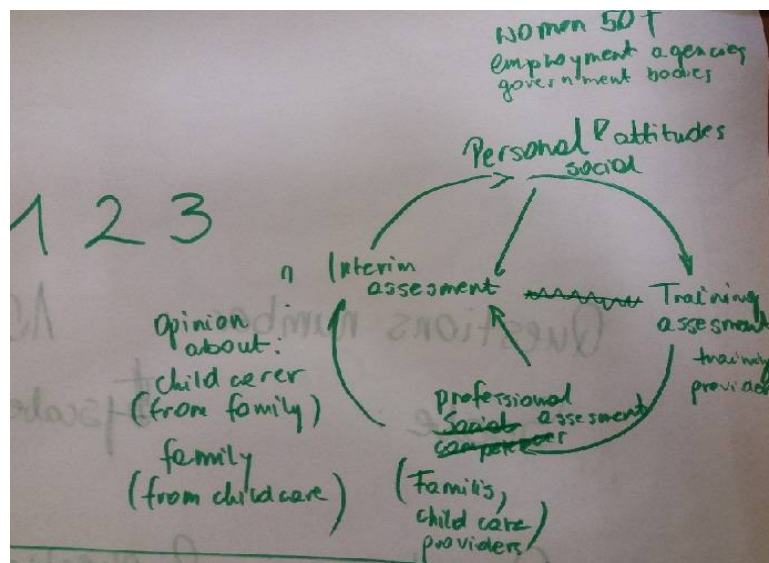 women 50+
employment agencies
government bodies
Personal & attitudes
social
1 2 3
n Interim
assesment
Training
assesment
training
provider
Opinion
about:
child carer
(from family)
family
(from childcare)
professional
Social assesment
(Familis,
child care
providers)
Questions number